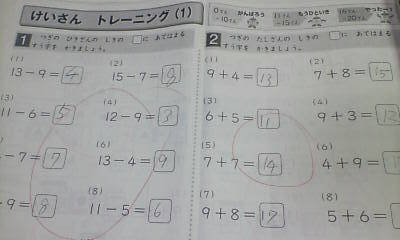 けいさん トレーニング(1)
0てん~10てん がんばろう 11てん~15てん もうひといき 16てん~20てん やったー
1 つぎの ひきざんの しきの □に あてはまる
すう字を かきましょう。
(1) 13-9=4
(2) 15-7=8
(3) 11-6=5
(4) 12-9=3
-7=7
(6) 13-4=9
-9=8
(8) 11-5=6
2 つぎの たしざんの しきの □に あてはまる
すう字を かきましょう。
(1) 9+4=13
(2) 7+8=15
(3) 6+5=11
(4) 9+3=
(5) 7+7=14
(6) 4+9=
(7) 9+8=17
(8) 5+6=